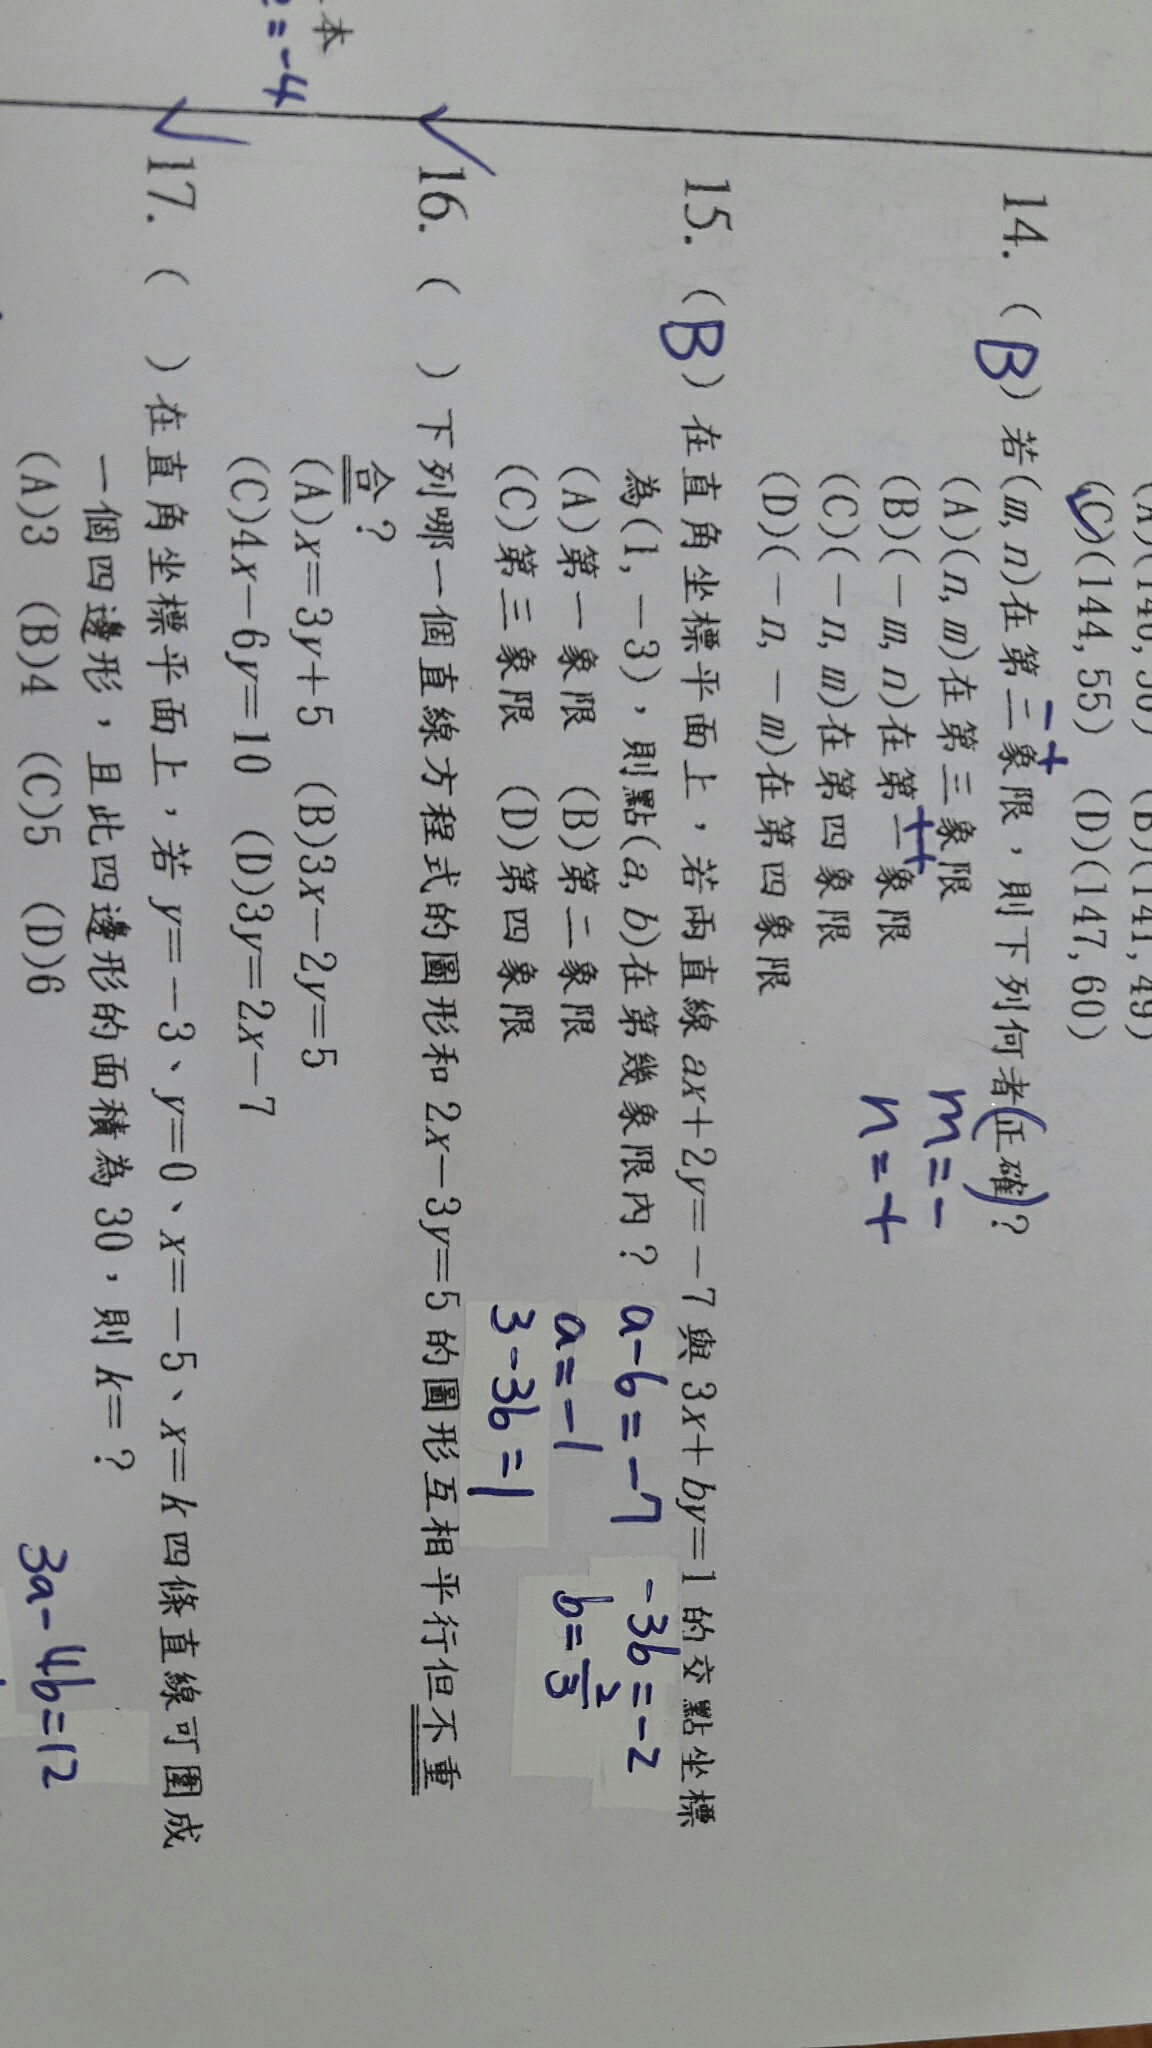 本
=-4
(C)(144, 55) (D)(147, 60)
14. (B)若(m, n)在第二象限，則下列何者正確？
-+
(A)(n, m)在第三象限
m=-
(B)(-m, n)在第二象限
++
n=+
(C)(-n, m)在第四象限
(D)(-n, -m)在第四象限
15. (B)在直角坐標平面上，若兩直線 ax+2y=-7 與 3x+by=1 的交點坐標
為(1, -3)，則點(a, b)在第幾象限內？
(A)第一象限 (B)第二象限
(C)第三象限 (D)第四象限
a-6=-7
a=-1
3-3b=1
-3b=-2
b=2/3
16. ( )下列哪一個直線方程式的圖形和 2x-3y=5 的圖形互相平行但不重
合？
(A)x=3y+5 (B)3x-2y=5
(C)4x-6y=10 (D)3y=2x-7
17. ( )在直角坐標平面上，若 y=-3、y=0、x=-5、x=k 四條直線可圍成
一個四邊形，且此四邊形的面積為 30，則 k=？
(A)3 (B)4 (C)5 (D)6
3a-4b=12